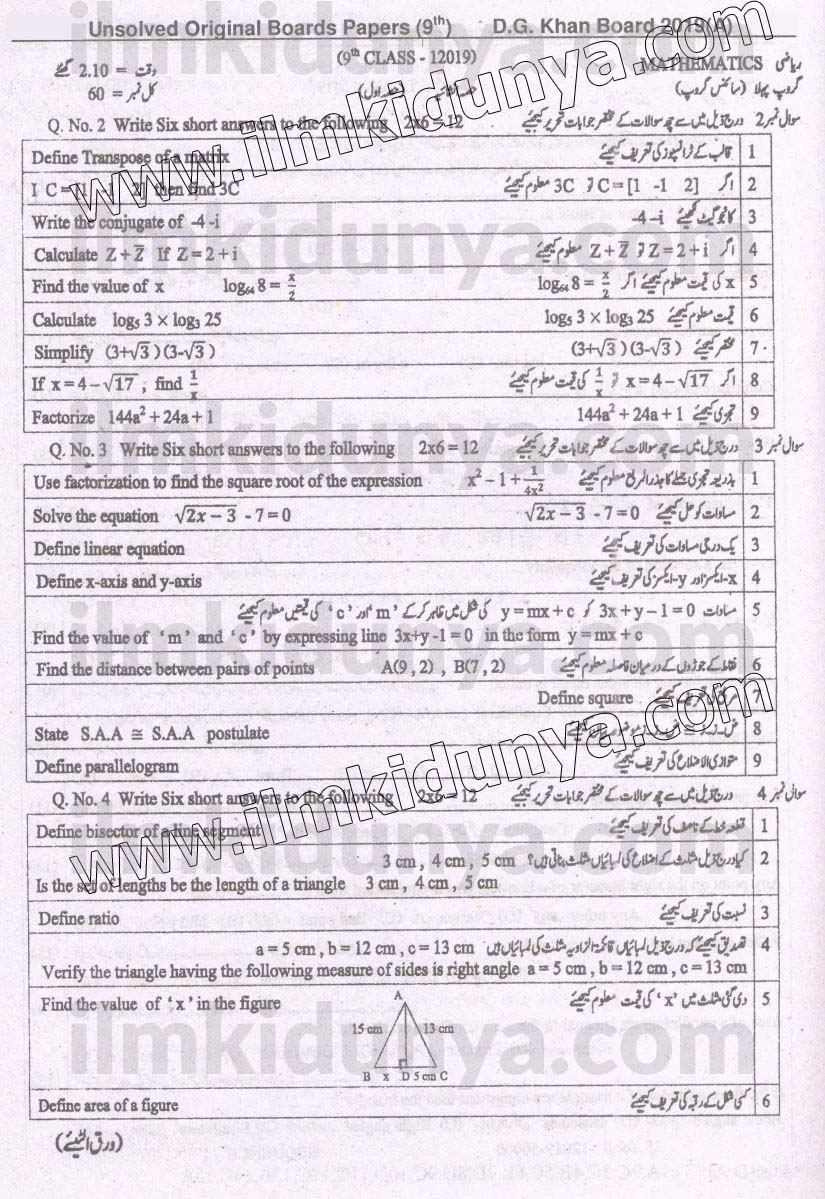 Unsolved Original Boards Papers (9th) D.G. Khan Board 2019(A)
(9th CLASS - 12019) MATHEMATICS ریاضی
وقت = 2.10 گھنٹے
کل نمبر = 60 گروپ پہلا (سائنس گروپ)
Q. No. 2 Write Six short answers to the following 2x6 = 12 درج ذیل میں سے چھ سوالات کے مختصر جوابات تحریر کیجیئے سوال نمبر 2
Define Transpose of a matrix قالب کے ٹرانسپوز کی تعریف کیجیئے 1
I C = [1 -1 2] then find 3C اگر C = [1 -1 2] تو 3C معلوم کیجیئے 2
Write the conjugate of -4 -i -4 -i کانجوگیٹ لکھیئے 3
Calculate Z + Z̅ If Z = 2 + i اگر Z = 2 + i تو Z + Z̅ معلوم کیجیئے 4
Find the value of x log₆₄ 8 = x/2 x کی قیمت معلوم کیجیئے اگر log₆₄ 8 = x/2 5
Calculate log₅ 3 × log₃ 25 قیمت معلوم کیجیئے log₅ 3 × log₃ 25 6
Simplify (3+√3)(3-√3) مختصر کیجیئے (3+√3)(3-√3) 7
If x = 4 – √17 ; find 1/x اگر x = 4 – √17 تو 1/x کی قیمت معلوم کیجیئے 8
Factorize 144a² + 24a + 1 تجزی کیجیئے 144a² + 24a + 1 9
Q. No. 3 Write Six short answers to the following 2x6 = 12 درج ذیل میں سے چھ سوالات کے مختصر جوابات تحریر کیجیئے سوال نمبر 3
Use factorization to find the square root of the expression x² – 1 + 1/4x² بذریعہ تجزی جملے کا جذرالمربع معلوم کیجیئے 1
Solve the equation √2x – 3 - 7 = 0 مساوات کو حل کیجیئے √2x – 3 - 7 = 0 2
Define linear equation یک درجی مساوات کی تعریف کیجیئے 3
Define x-axis and y-axis x-ایکسز اور y-ایکسز کی تعریف کیجیئے 4
مساوات 3x + y – 1 = 0 کو y = mx + c کی شکل میں ظاہر کر کے 'm' اور 'c' کی قیمتیں معلوم کیجیئے 5
Find the value of 'm' and 'c' by expressing line 3x+y -1 = 0 in the form y = mx + c
Find the distance between pairs of points A(9 , 2) , B(7 , 2) نقاط کے جوڑوں کے درمیان فاصلہ معلوم کیجیئے 6
Define square مربع کی تعریف کیجیئے 7
State S.A.A ≅ S.A.A postulate 8
Define parallelogram متوازی الاضلاع کی تعریف کیجیئے 9
Q. No. 4 Write Six short answers to the following 2x6 = 12 درج ذیل میں سے چھ سوالات کے مختصر جوابات تحریر کیجیئے سوال نمبر 4
Define bisector of a line segment قطعہ خط کے ناصف کی تعریف کیجیئے 1
کیا درج ذیل مثلث کے اضلاع کی لمبائیاں مثلث بناتی ہیں؟ 3 cm , 4 cm , 5 cm 2
Is the set of lengths be the length of a triangle 3 cm , 4 cm , 5 cm
Define ratio نسبت کی تعریف کیجیئے 3
تصدیق کیجیئے کہ درج ذیل لمبائیاں قائمۃ الزاویہ مثلث کی لمبائیاں ہیں a = 5 cm , b = 12 cm , c = 13 cm 4
Verify the triangle having the following measure of sides is right angle a = 5 cm , b = 12 cm , c = 13 cm
Find the value of 'x' in the figure دی گئی مثلث میں 'x' کی قیمت معلوم کیجیئے 5
A
15 cm 13 cm
B x D 5 cm C
Define area of a figure کسی شکل کے رقبہ کی تعریف کیجیئے 6
(ورق الٹیئے)
www.ilmkidunya.com
www.ilmkidunya.com
ilmkidunya.com
ilmkidunya.com
ilmkidunya.com
ilmkidunya.com
ilmkidunya.com